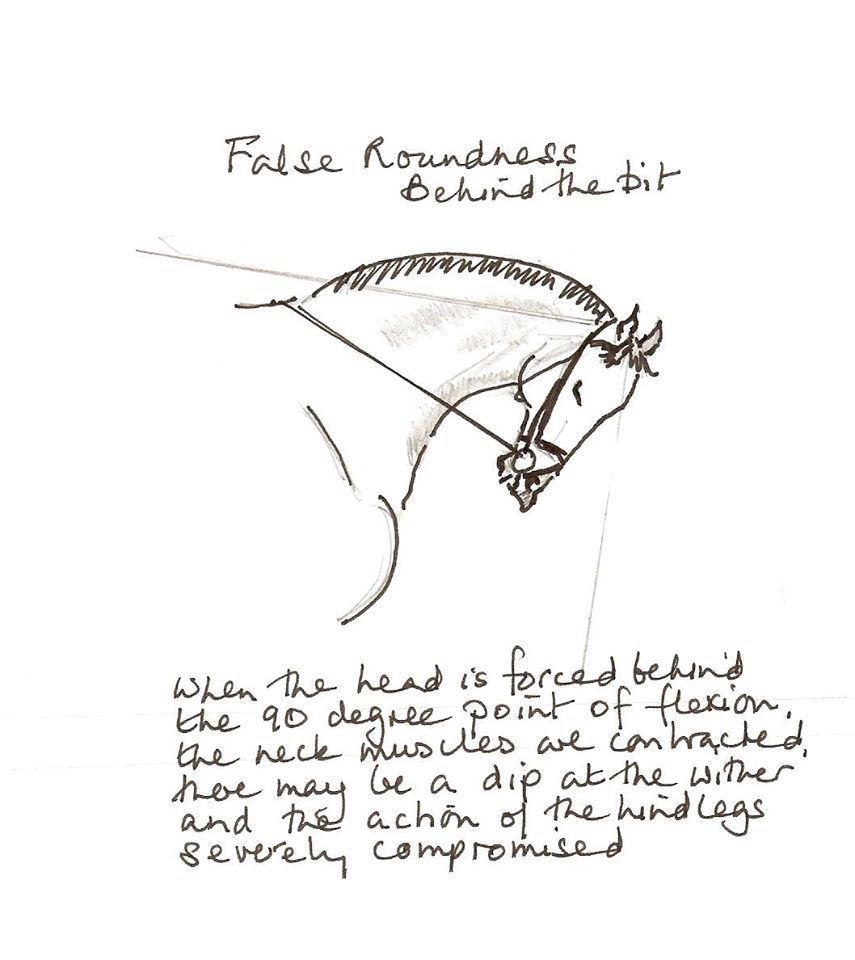 False Roundness
Behind the bit
When the head is forced behind
the 90 degree point of flexion,
the neck muscles are contracted,
there may be a dip at the wither
and the action of the hindlegs
severely compromised